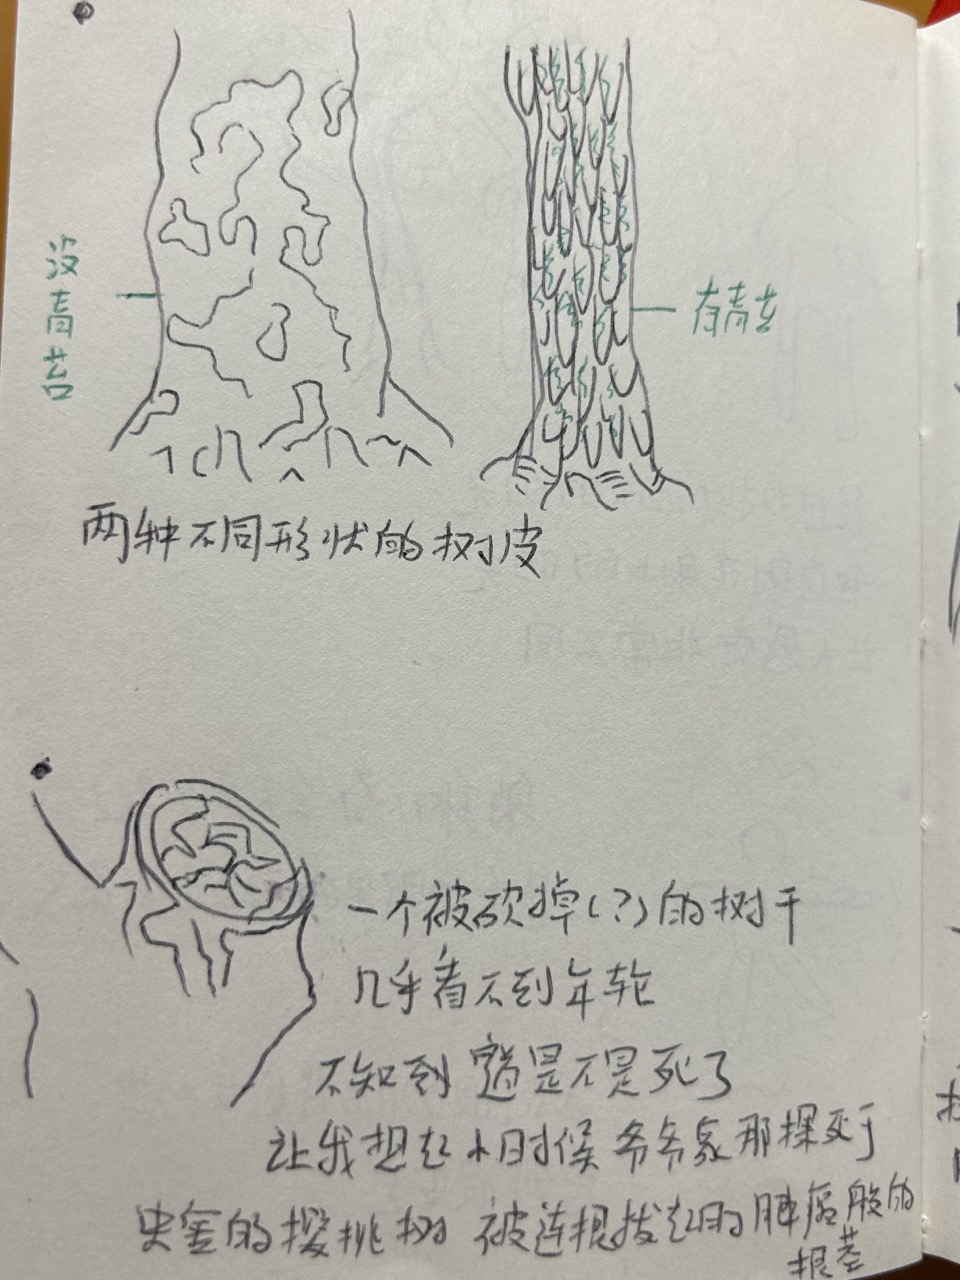 没青苔
有青苔
两种不同形状的树皮
一个被砍掉(?)的树干
几乎看不到年轮
不知到 是不是死了
让我想起小时候爷爷家那棵死于
虫害的樱桃树 被连根拔起的肿瘤般的
根茎